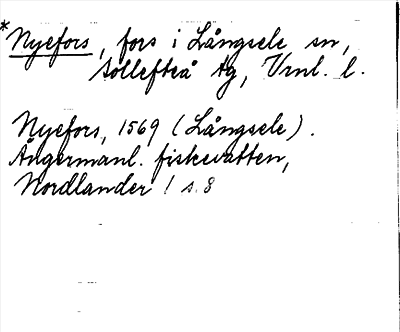 *Nyefors, fors i Långsele sn,
Sollefteå tg, Vrnl. l.
Nyefors, 1569 (Långsele).
Ångermanl. fiskevatten,
Nordlander 1 s. 8